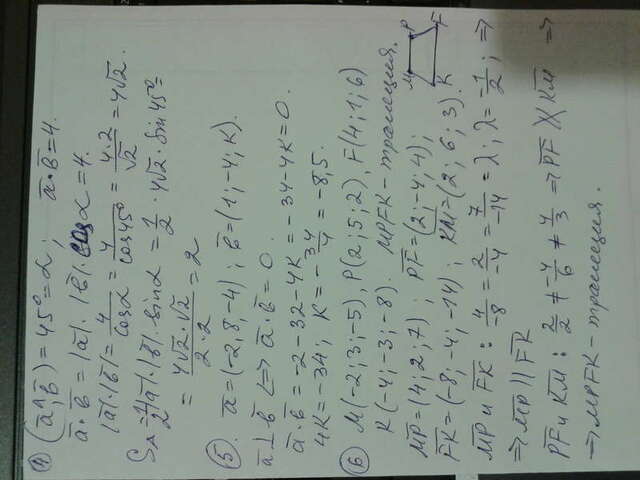 ④ (a̅^;b̅) = 45° = α; a̅·b̅ = 4.
a̅·b̅ = |a̅|·|b̅|·cosα = 4.
|a̅|·|b̅| = 4/cosα = 4/cos45° = 4·2/√2 = 4√2.
S△ = 1/2|a̅|·|b̅|·sinα = 1/2·4√2·sin45° =
= 4√2·√2/2·2 = 2
⑤. a̅ = (-2; 8; -4); b̅ = (1; -4; K).
a̅ ⊥ b̅ <=> a̅·b̅ = 0.
a̅·b̅ = -2-32-4K = -34-4K = 0.
4K = -34; K = -34/4 = -8,5.
⑥ M(-2; 3; -5), P(2; 5; 2), F(4; 1; 6)
K(-4; -3; -8). MPFK - трапеция.
M P F K
MP = (4; 2; 7); PF = (2; -4; 4);
FK = (-8; -4; -14) KM = (2; 6; 3).
MP и FK: 4/-8 = 2/-4 = 7/-14 = λ; λ = -1/2; =>
=> MP || FK
PF и KM: 2/2 ≠ -4/6 ≠ 4/3 => PF ∦ KM =>
=> MPFK - трапеция.